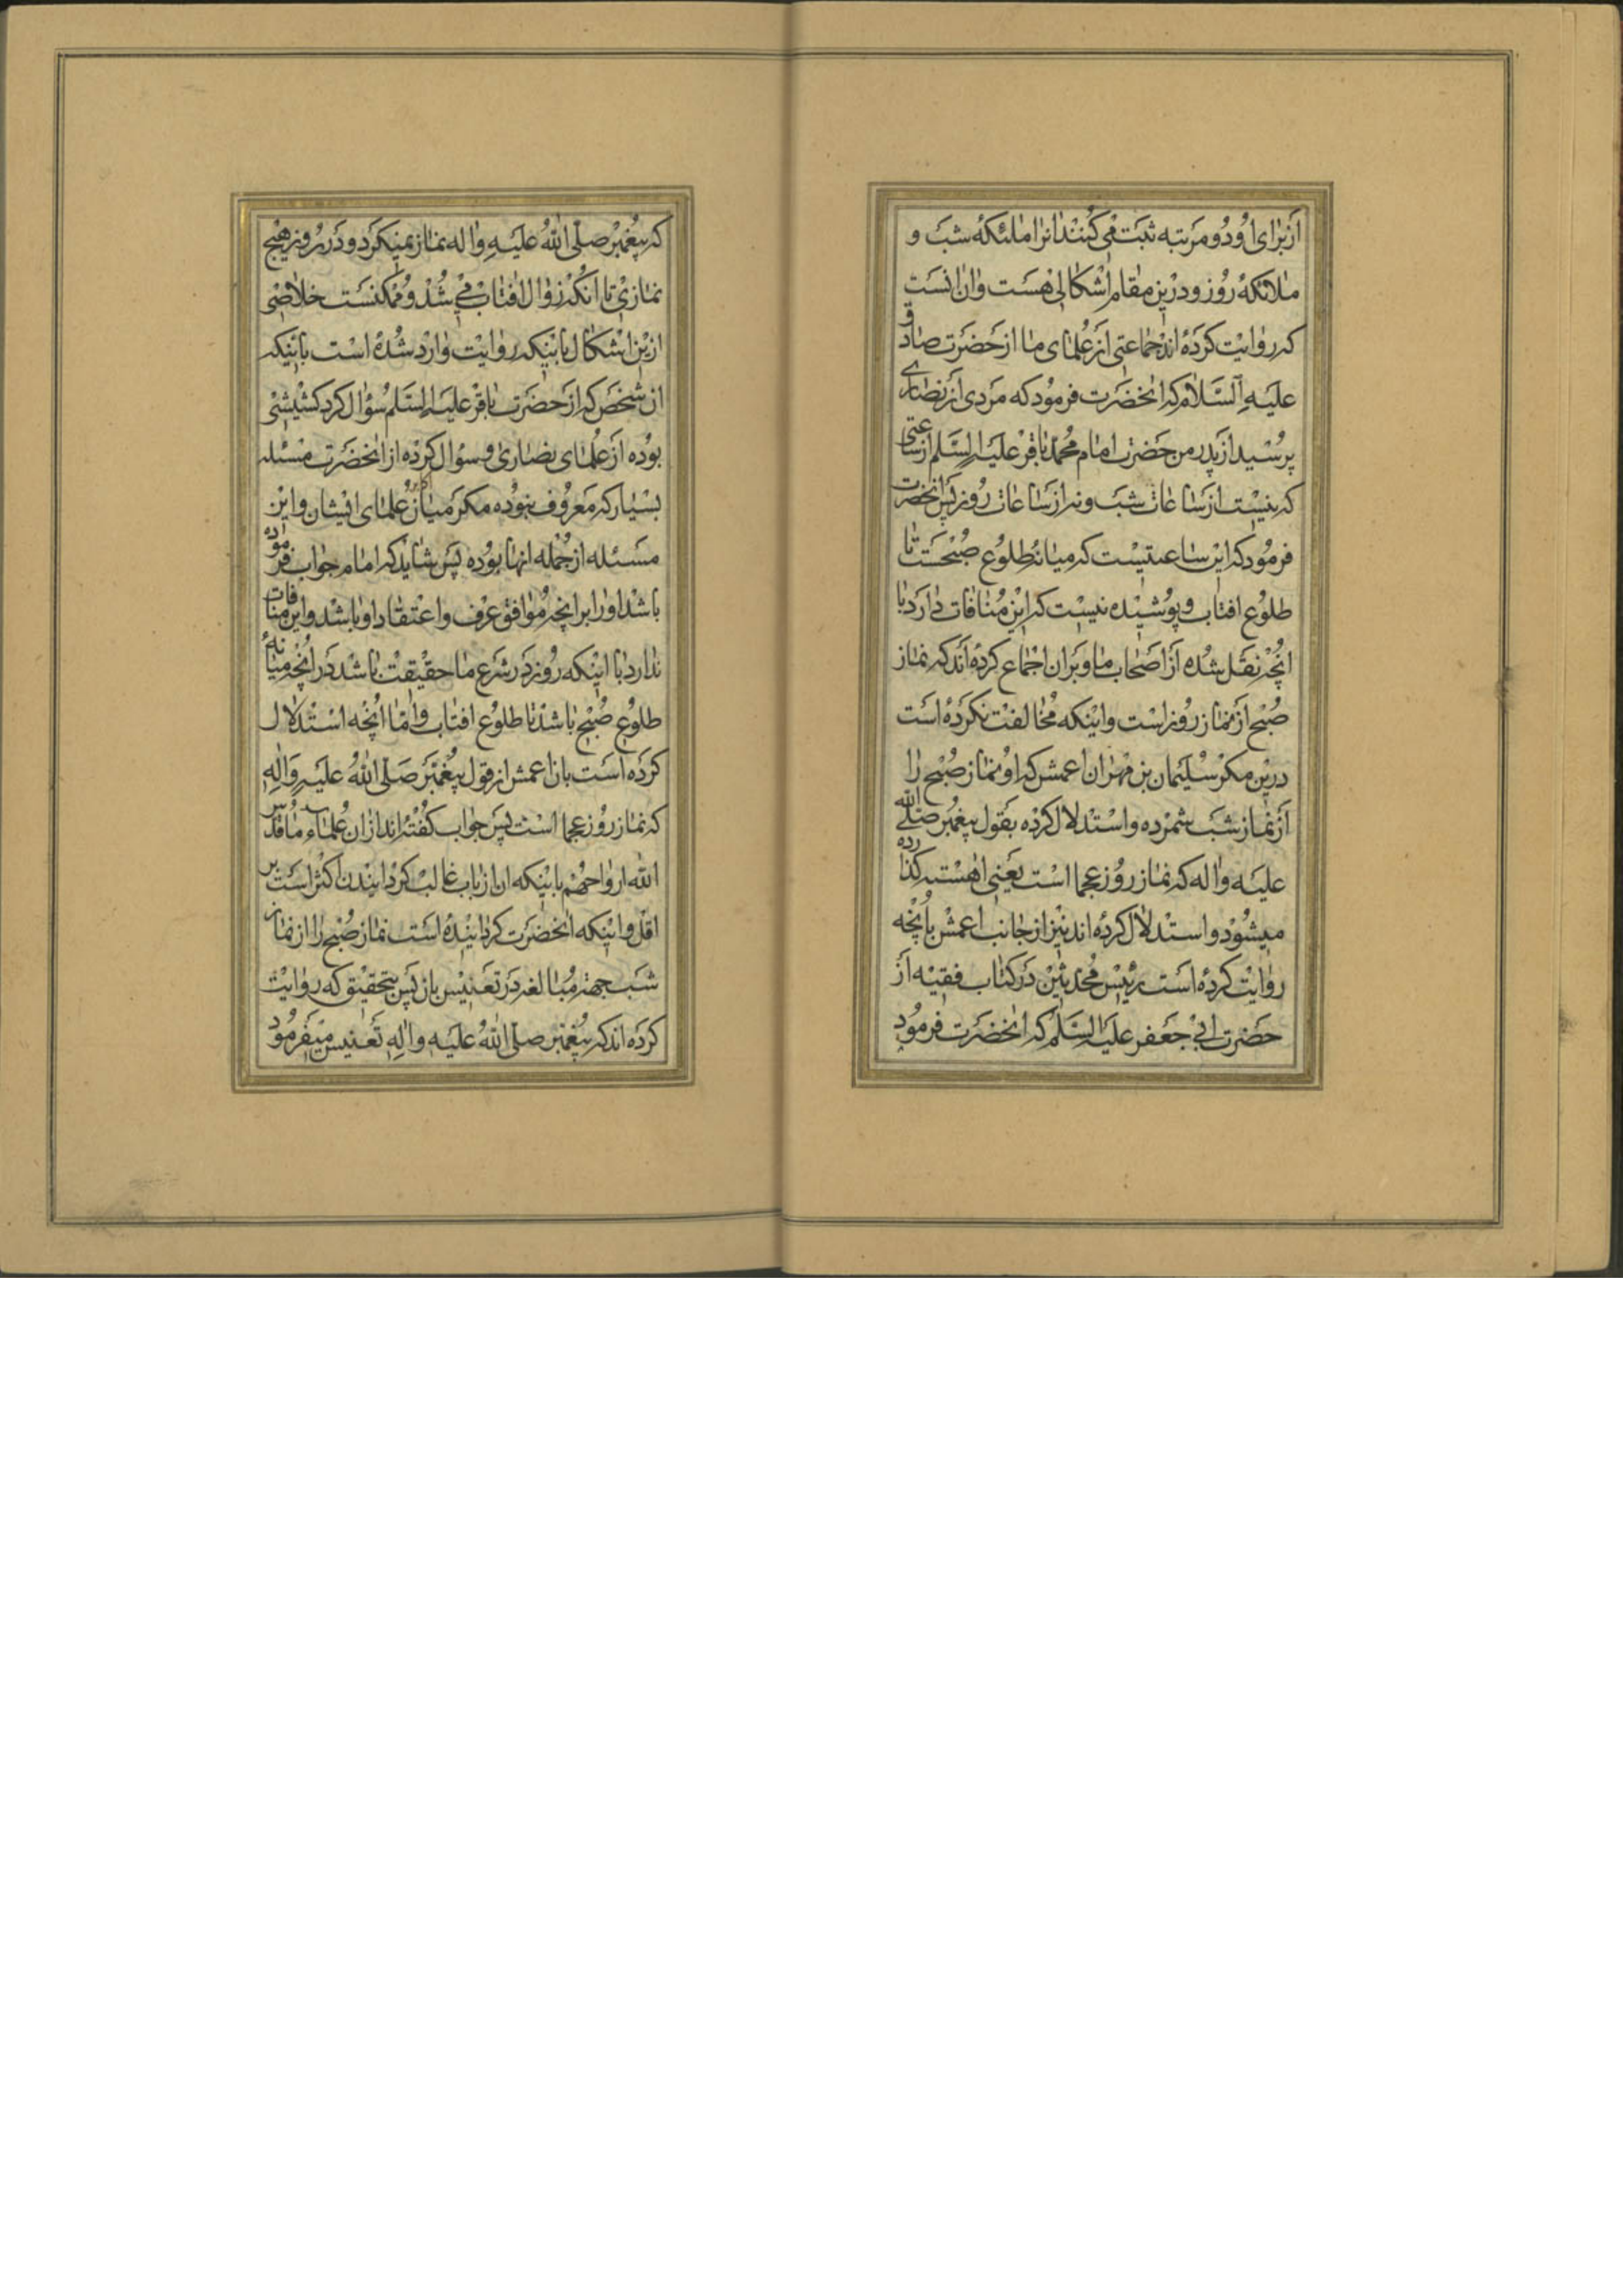 از برای او دو مرتبه ثبت می کنند انرا ملئکهٔ شب و
ملائکهٔ روز و درین مقام اشکالی هست و ان انست
که روایت کرده اند جماعتی از علمای ما از حضرت صادق
علیه السلام که انحضرت فرمود که مردی از نصاری
پرسید از پدر من حضرت امام محمد باقر علیه السلم از ساعتی
که نیست از ساعات شب و نه از ساعات روز پس انحضرت
فرمود که این ساعتیست که میانهٔ طلوع صبحست تا
طلوع افتاب و پوشیده نیست که این منافات دارد با
انچه نقل شده از اصحاب ما و بران اجماع کرده اند که نماز
صبح از نماز روز است و اینکه مخالفت نکرده است
درین مکر سلیمان بن مهران اعمش که او نماز صبح را
از نماز شب شمرده و استدلال کرده بقول پیغمبر صلی الله
علیه و اله که نماز روز عجما است یعنی اهسته کذارده
میشود و استدلال کرده اند نیز از جانب اعمش بانچه
روایت کرده است رئیس محدثین در کتاب فقیه از
حضرت ابی جعفر علیه السلم که انحضرت فرمود
که پیغمبر صلی الله علیه و اله نماز نمیکرد و در روز هیچ
نمازی تا انکه زوال افتاب می شد و ممکنست خلاصی
ازین اشکال باینکه روایت وارد شده است باینکه
ان شخص که از حضرت باقر علیه السلم سؤال کرد کشیشی
بوده از علمای نصاری و سؤال کرده از انحضرت مسئله
بسیار که معروف نبوده مکر میانهٔ علمای ایشان و این
مسئله از جمله انها بوده پس شاید که امام جواب فرموده
باشد او را برانچه موافق عرف و اعتقاد او باشد و این منافات
ندارد با اینکه روز در شرع ما حقیقت باشد در انچه میانهٔ
طلوع صبح باشد تا طلوع افتاب و اما انچه استدلال
کرده است بان اعمش از قول پیغمبر صلی الله علیه و اله
که نماز روز عجما است پس جواب کفته اند ازان علماء ما قدس
الله ارواحهم باینکه ان از باب غالب کردانیدن اکثر است بر
اقل و اینکه انحضرت کردانیده است نماز صبح را از نماز
شب جهة مبالغه در تغنیس باز پس بتحقیق که روایت
کرده اند که پیغمبر صلی الله علیه و اله تغنیس میفرمود